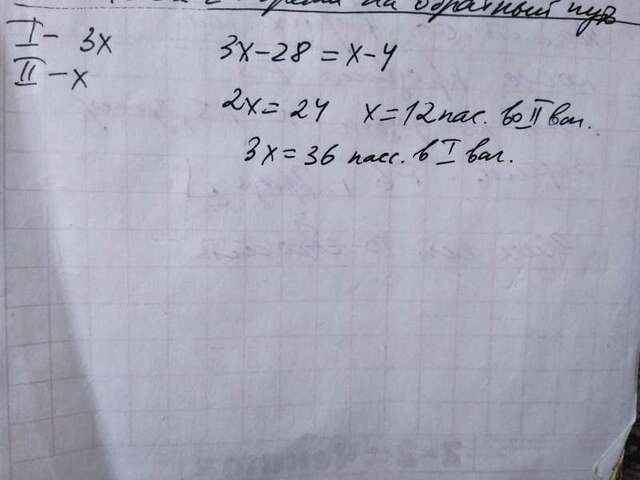 на обратный путь
I - 3x
3x-28 = x-4
II - x
2x = 24 x = 12 пас. во II ваг.
3x = 36 пасс. в I ваг.